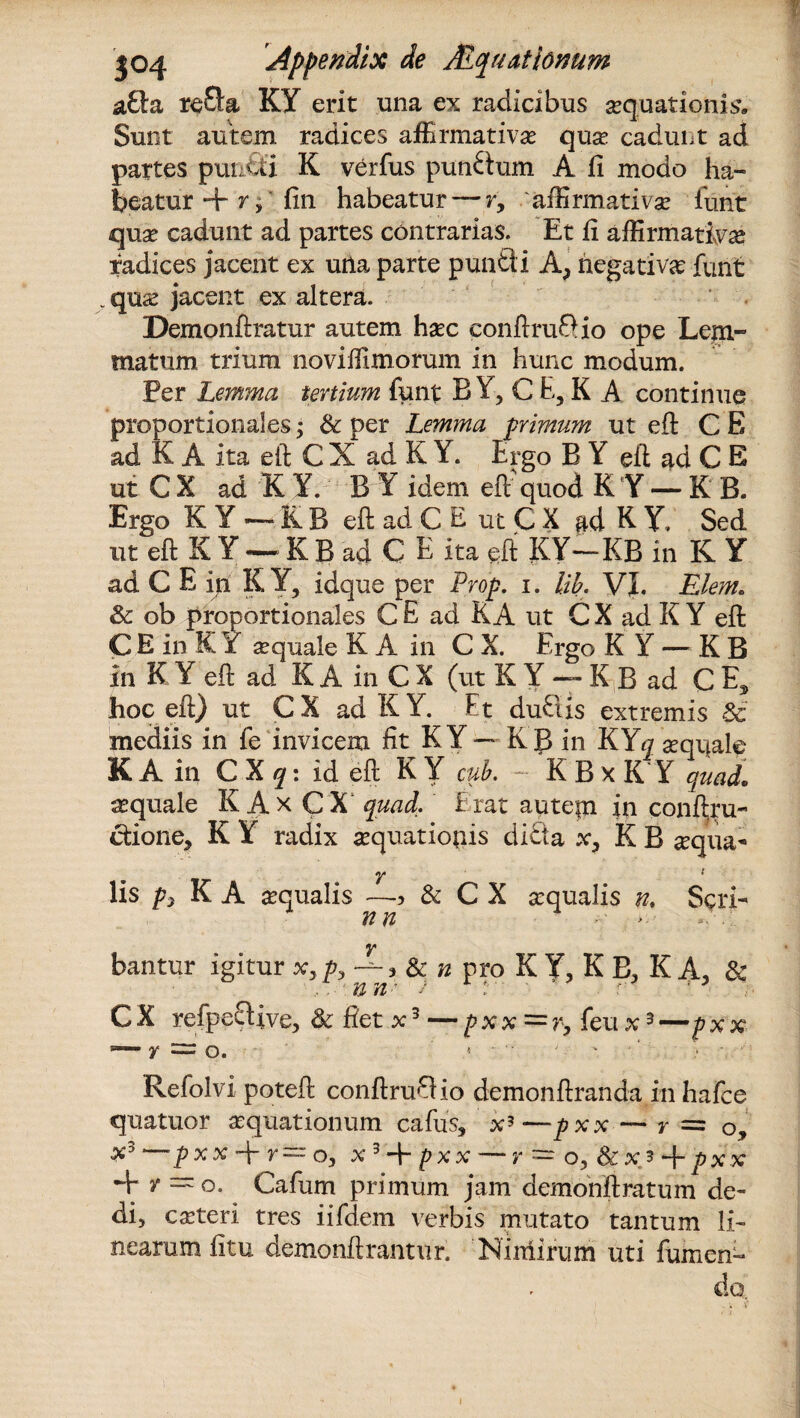 304 Appendix de Æquationum
acta recta KY erit una ex radicibus æquationis.
Sunt autem radices affirmativæ quæ cadunt ad
partes puncti K verſus punctum A ſi modo ha-
beatur + r, ſin habeatur — r, affirmativæ ſunt
quæ cadunt ad partes contrarias. Et ſi affirmativæ
radices jacent ex una parte puncti A, negativæ ſunt
quæ jacent ex altera.
Demonſtratur autem hæc conſtructio ope Lem-
matum trium noviſſimorum in hunc modum.
Per Lemma tertium ſunt B Y, C E, K A continue
proportionales; & per Lemma primum ut eſt C E
ad K A ita eſt C X ad K Y. Ergo B Y eſt ad C E
ut C X ad K Y. B Y idem eſt quod K Y — K B.
Ergo K Y — K B eſt ad C E ut C X ad K Y. Sed
ut eſt K Y — K B ad C E ita eſt KY—KB in K Y
ad C E in K Y, idque per Prop. 1. lib. VI. Elem.
& ob proportionales C E ad K A ut C X ad K Y eſt
C E in K Y æquale K A in C X. Ergo K Y — K B
in K Y eſt ad K A in C X (ut K Y — K B ad C E,
hoc eſt) ut C X ad K Y. Et ductis extremis &
mediis in ſe invicem fit K Y — K B in KYq æquale
K A in C X q: id eſt K Y cub. - K B x K Y quad.
æquale K A x C X quad. Erat autem in conſtru-
ctione, K Y radix æquationis dicta x, K B æqua-
lis p, K A æqualis r/nn, & C X æqualis n. Scri-
bantur igitur x, p, r/nn, & n pro K Y, K B, K A, &
C X reſpective, & fiet x³ — pxx = r, ſeu x³ — pxx
— r = 0.
Reſolvi poteſt conſtructio demonſtranda in haſce
quatuor æquationum caſus, x³ — pxx — r = 0,
x³ — pxx + r = 0, x³ + pxx — r = 0, & x³ + pxx
+ r = 0. Caſum primum jam demonſtratum de-
di, cæteri tres iiſdem verbis mutato tantum li-
nearum ſitu demonſtrantur. Nimirum uti ſumen-
do